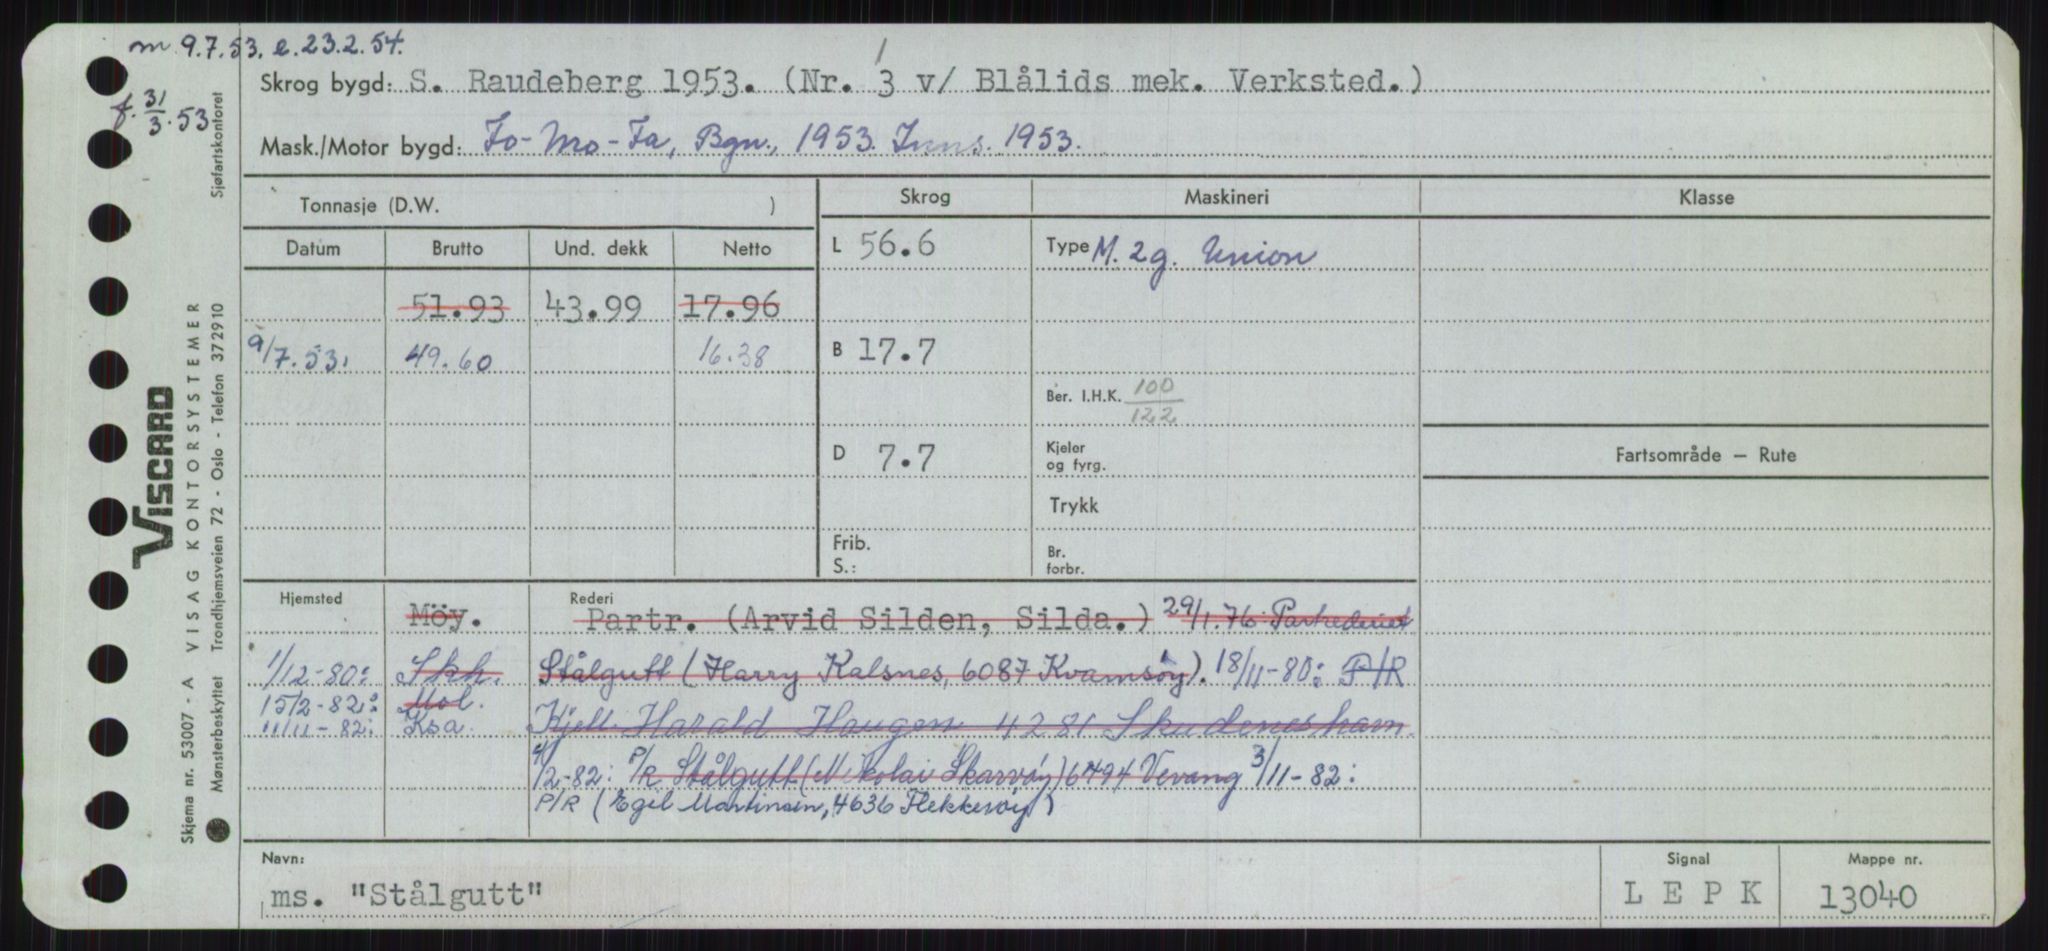 m 9.7.53. e. 23.2.54.
f. 31/3.53
Skrog bygd: S. Raudeberg 1953. (Nr. 3 v/ Blålids mek. Verksted.)
Mask./Motor bygd: Fo-Mo-Fa, Bgn., 1953. Inns. 1953.
Tonnasje (D.W. )
Skrog Maskineri Klasse
Datum Brutto Und. dekk Netto
L 56.6 Type M. 2g. Union
51.93 43.99 17.96
9/7.53. 49.60 16.38
B 17.7
Ber. I.H.K. 100/122
D 7.7
Kjeler
og fyrg.
Fartsområde – Rute
Trykk
Frib.
S.:
Br.
forbr.
Hjemsted Rederi
Möy. Partr. (Arvid Silden, Silda.) 29/1.76: Partrederiet
1/12-80: Skh. Stålgutt (Harry Kalsnes, 6087 Kvamsøy). 18/11-80: P/R
15/2-82: Mol.
11/11-82: Ksa. Kjell Harald Haugen 4281 Skudeneshavn.
4/2-82: P/R Stålgutt (Nikolai Skarvøy) 6494 Vevang 3/11-82:
P/R (Egil Martinsen, 4636 Flekkerøy)
Navn: Signal Mappe nr.
ms. "Stålgutt" L E P K 13040
Skjema nr. 53007 - A VISAG KONTORSYSTEMER Sjøfartskontoret
Mønsterbeskyttet Trondhjemsveien 72 - Oslo - Telefon 372910
VISCARD